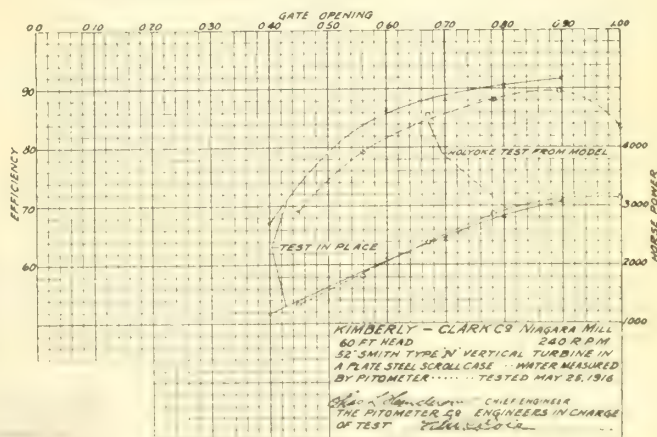 GATE OPENING
0.0 0.10 0.20 0.30 0.40 0.50 0.60 0.70 0.80 0.90 1.00
90
80
70
60
EFFICIENCY
HOLYOKE TEST FROM MODEL
TEST IN PLACE
3000
2000
1000
HORSE POWER
KIMBERLY - CLARK CO NIAGARA MILL
60 FT HEAD 240 R P M
52" SMITH TYPE "N" VERTICAL TURBINE IN
A PLATE STEEL SCROLL CASE ·· WATER MEASURED
BY PITOMETER ····· TESTED MAY 25, 1916
CHIEF ENGINEER
THE PITOMETER CO ENGINEERS IN CHARGE
OF TEST